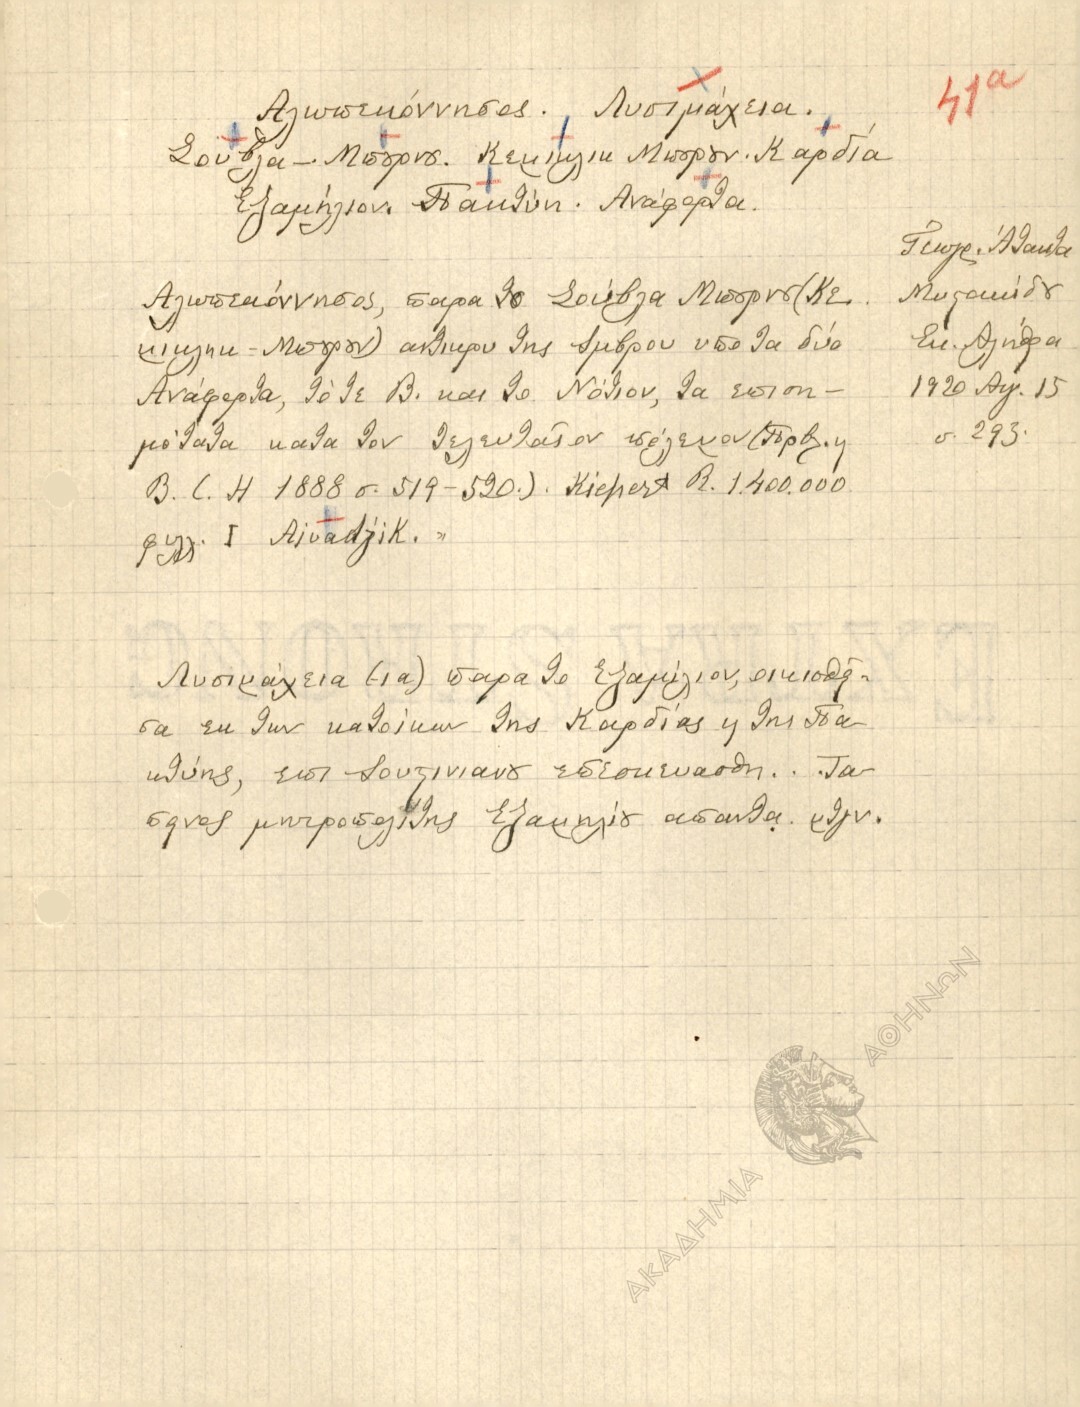 41α
Αλωπεκόννησος. Λυσιμάχεια.
Σούβλα – Μπουρνου. Κεμικλικ Μπουρουν. Καρδία
Εξαμήλιον. Πακτύη. Ανάφορτα.
Γεωγρ. Άτακτα
Μυστακίδου
Εκ. Αλήθεια
1920 Αυγ. 15
σ. 293.
Αλωπεκόννησος, παρα το Σούβλα Μπουρνου (Κε
μικληκ – Μπουρουν) αντικρυ της Ιμβρου υπο τα δύο
Ανάφορτα, τό τε Β. και το Νότιον, τα επιση–
μότατα κατα τον τελευταίον πόλεμον (Πρβλ. η
B. C. H 1888 σ. 519–520.). Kiepert R. 1.400.000
φυλλ. I Aivadjik. »
Λυσιμάχεια (–ια) παρα το Εξαμίλιον, οικισθεί-
σα εκ των κατοίκων της Καρδίας η της Πα-
κτύης, επι Ιουστινιανου επεσκευασθη.. Τα-
πεινος μητροπολίτης Εξαμηλίου απαντα.
ΑΚΑΔΗΜΙΑ ΑΘΗΝΩΝ